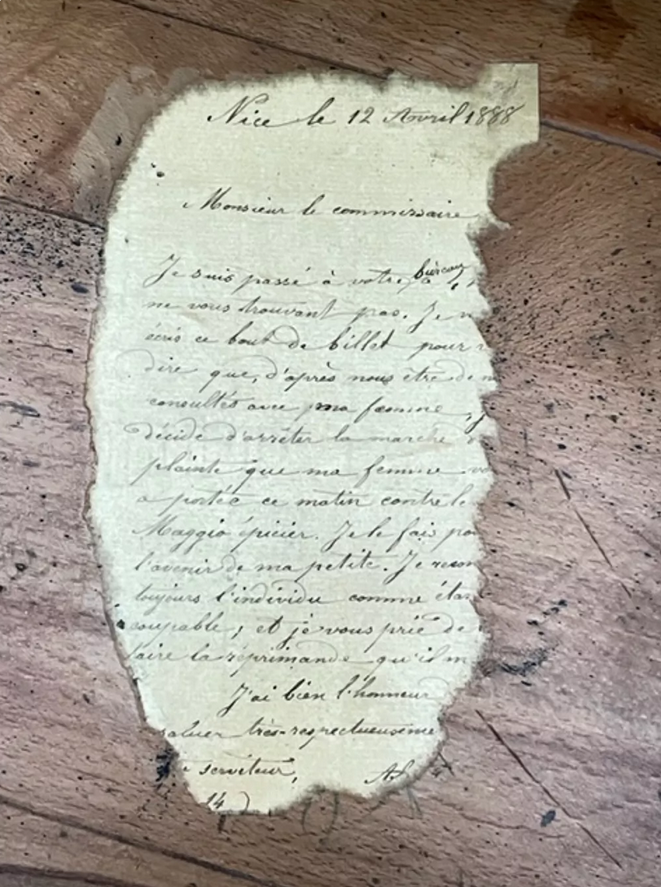 Nice le 12 Avril 1888
Monsieur le commissaire
Je suis passé à votre bureau
ne vous trouvant pas. Je
écris ce bout de billet pour
dire que, d'après nous être
consultés avec ma femme,
décide d'arrêter la marche
plainte que ma femme
a portée ce matin contre le
Maggio épicier. Je le fais
l'avenir de ma petite. Je
toujours l'individu comme
coupable; et je vous prie de
faire la réprimande qu'il
J'ai bien l'honneur
saluer très-respectueuseme
serviteur,
14)